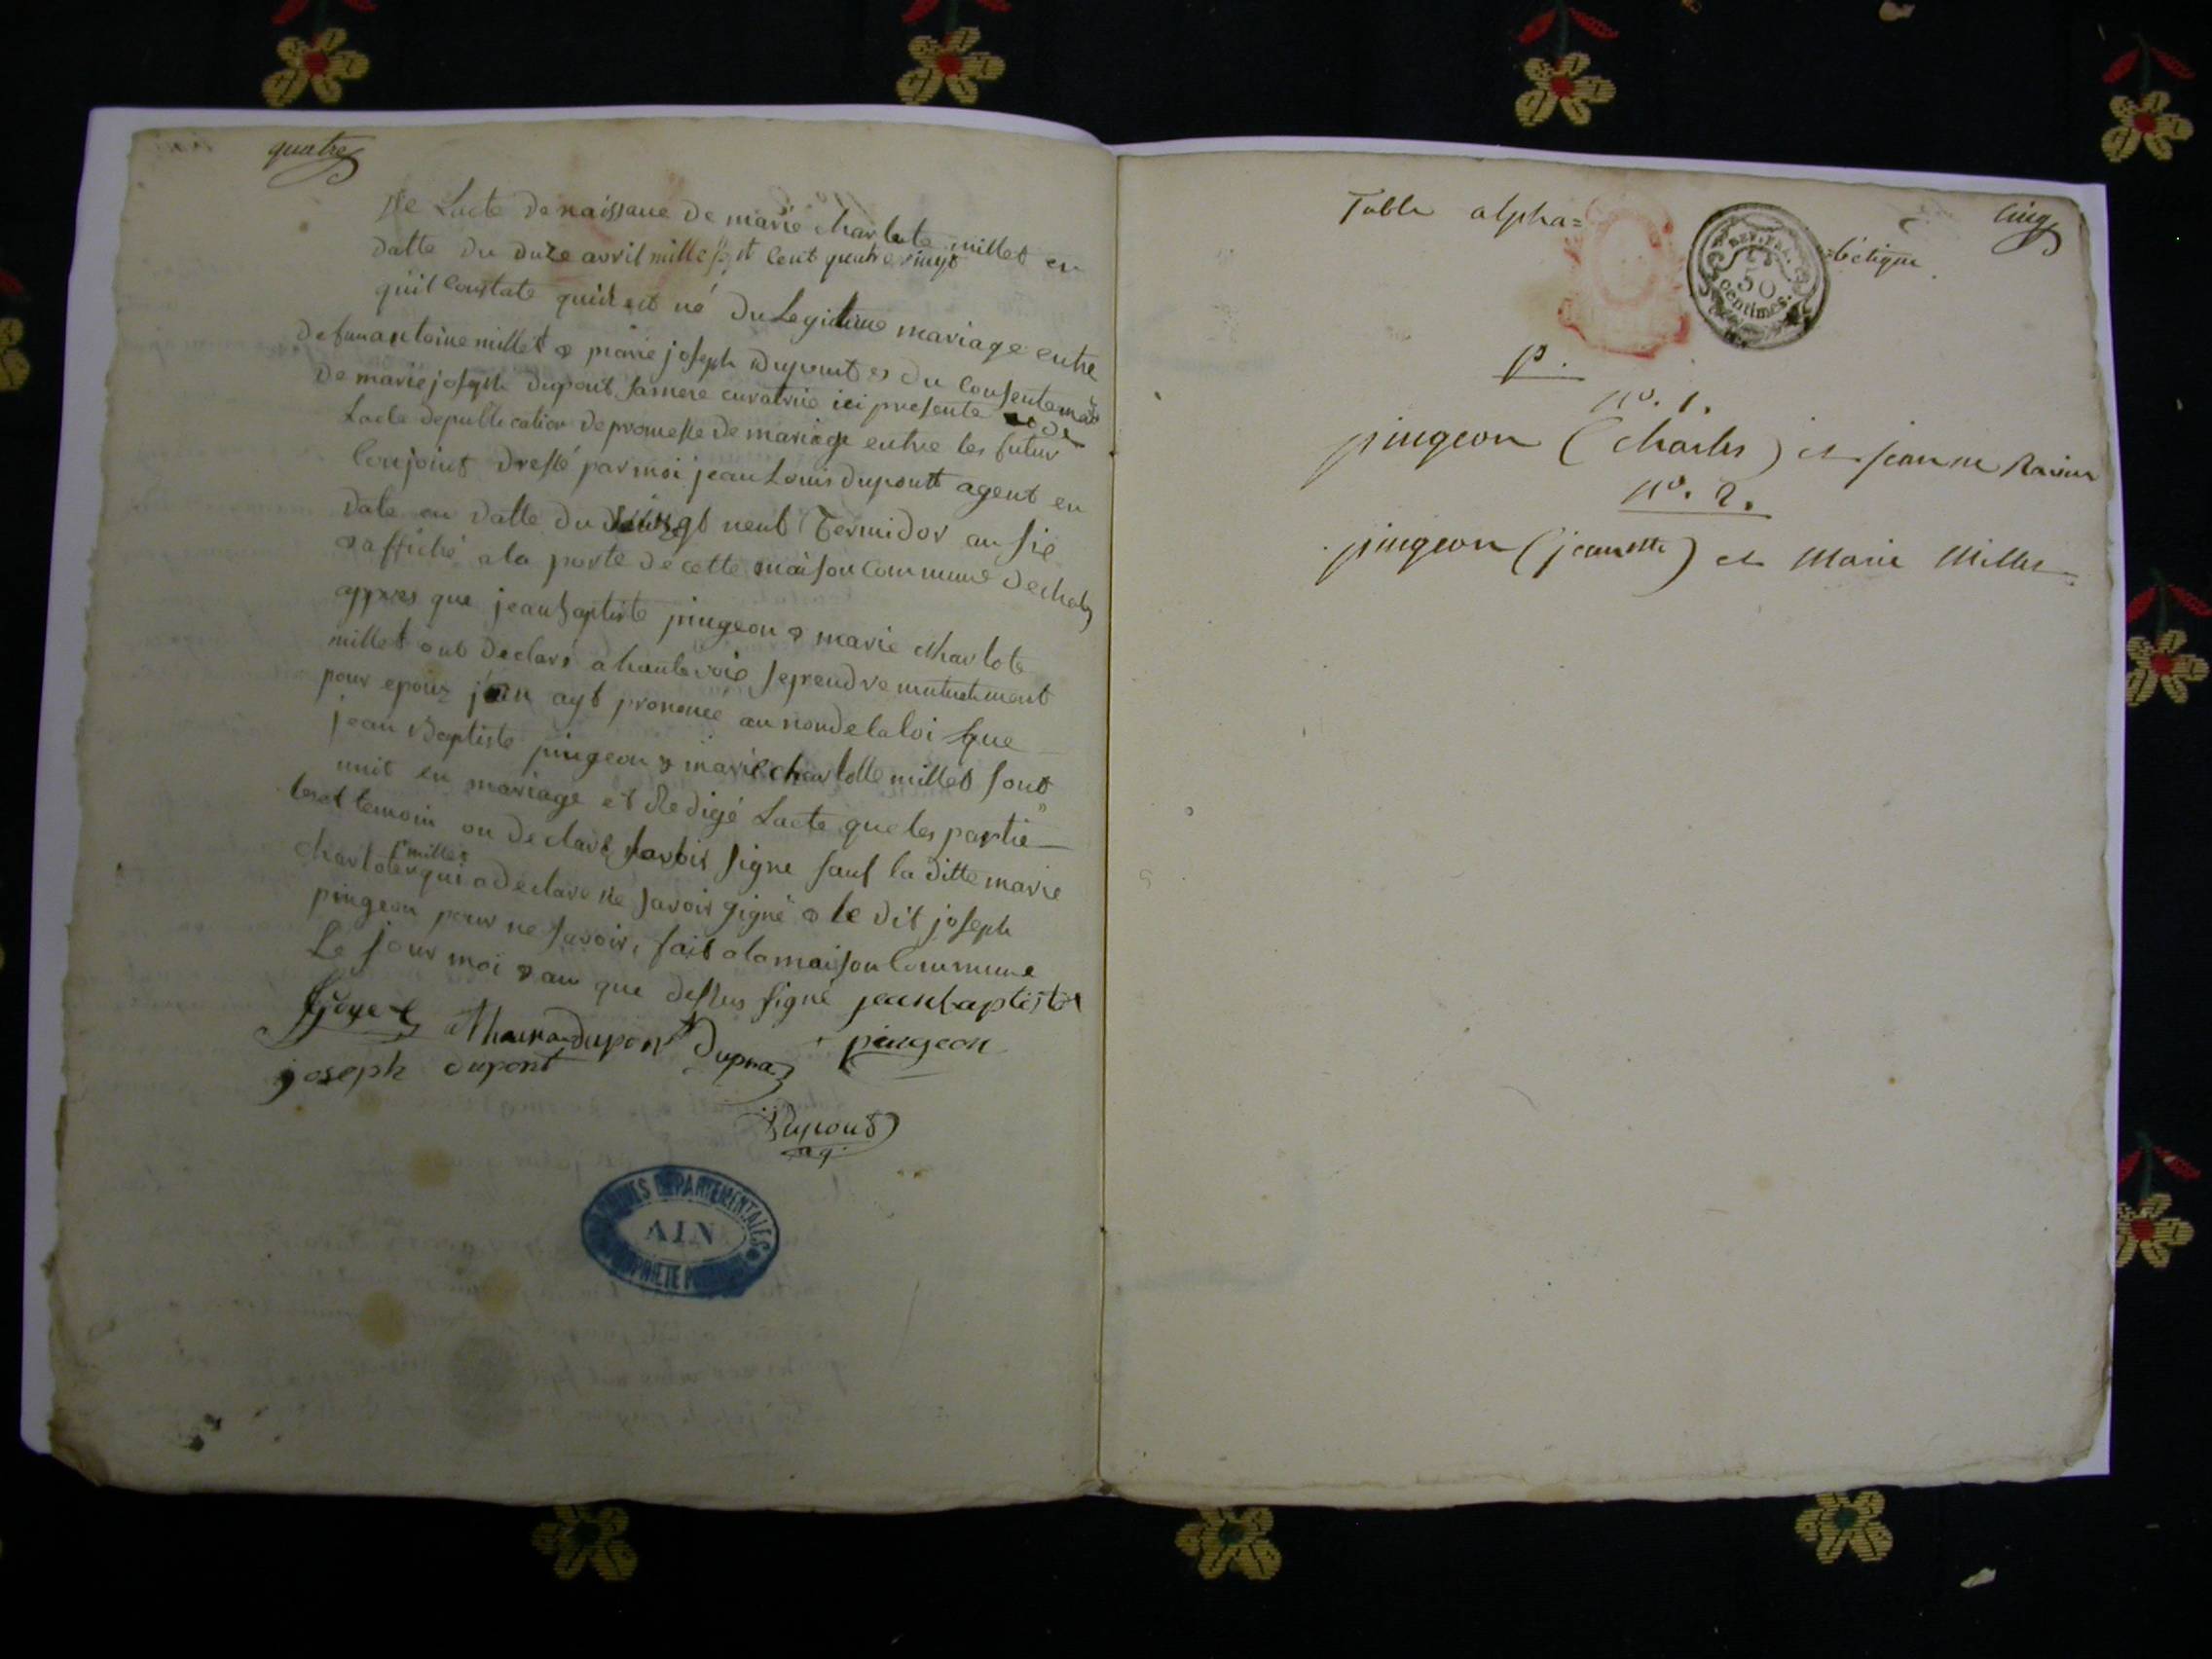 quatre
de Lacte de naissance de marie charlote millet en
datte du duze avril mille sept cent quatre vingt
quil constate quil est né du Legitime mariage entre
defun antoine millet & marie joseph Dupont & du consentement
de marie joseph dupont sa mere curatrice ici presente & de
Lacte de publication de promesse de mariage entre les futur
conjoint dressé par moi jean Louis dupont agent en
date en datte du vingt neuf Termidor an sie
& affiché a la porte de cette maison commune
appres que jean baptiste pingeon & marie charlote
millet ont declaré a haute voie se prendre mutuelment
pour epoux j'en ayt prononcé au non de la loi que
jean Baptiste pingeon & marie charlotte millet sont
unit en mariage et Redigé Lacte que les partie
et temoin on declaré savoir signe sauf la ditte marie
charlote millet qui a declaré ne savoir signé & le dit joseph
pingeon pour ne savoir, fait a la maison Commune
Le jour moi & an que dessus signé jean baptiste
pingeon
dupont Dupraz
joseph dupont
Dupont
ag.
ARCHIVES DÉPARTEMENTALES
AIN
PROPRIÉTÉ PUBLIQUE
Table alpha=
=bétique
cinq
REP. FRA.
50
centimes.
P.
n°. 1.
pingeon (charles) et jeanne Ravier
n°. 2.
pingeon (jean Bte) et Marie Millet